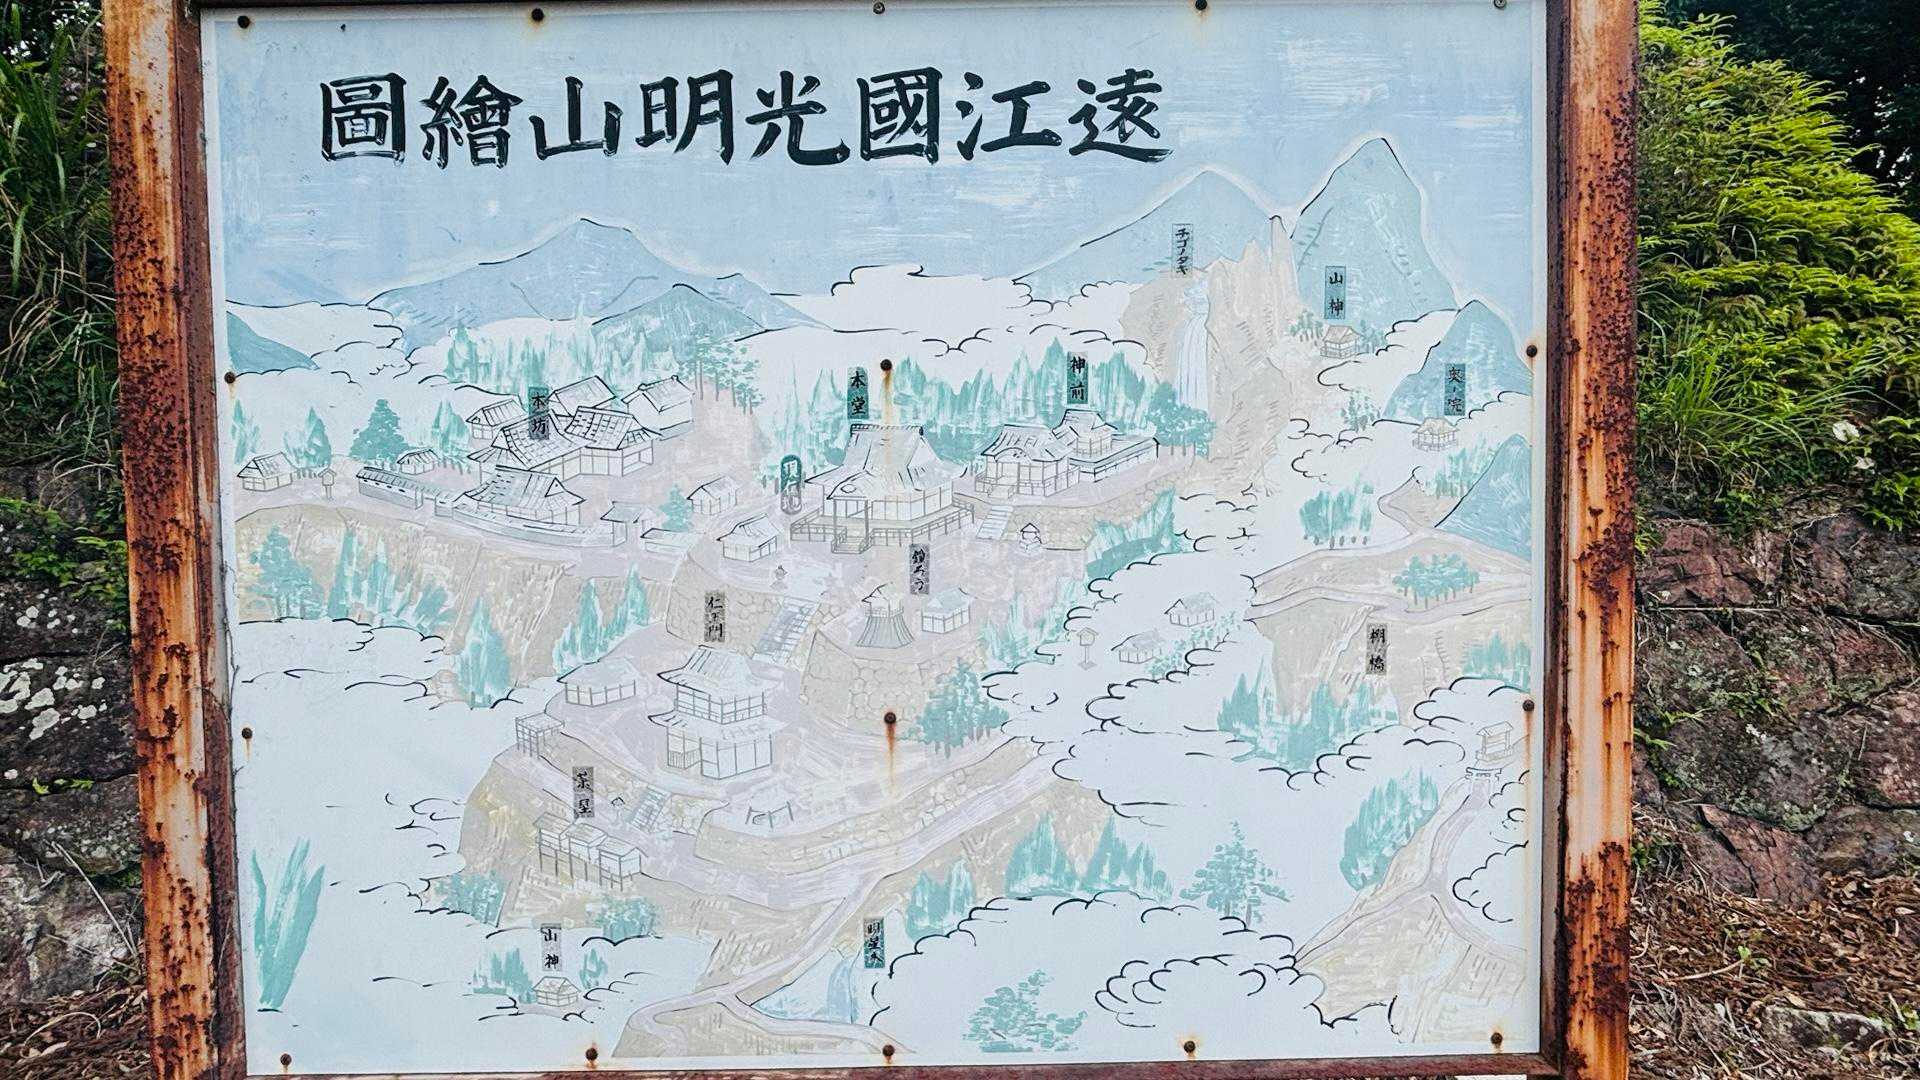 遠江國光明山繪圖
チゴノタキ
山神
奥ノ院
神前
本堂
本坊
現在地
鐘ろう
仁王門
棚橋
茶屋
明星水
山神